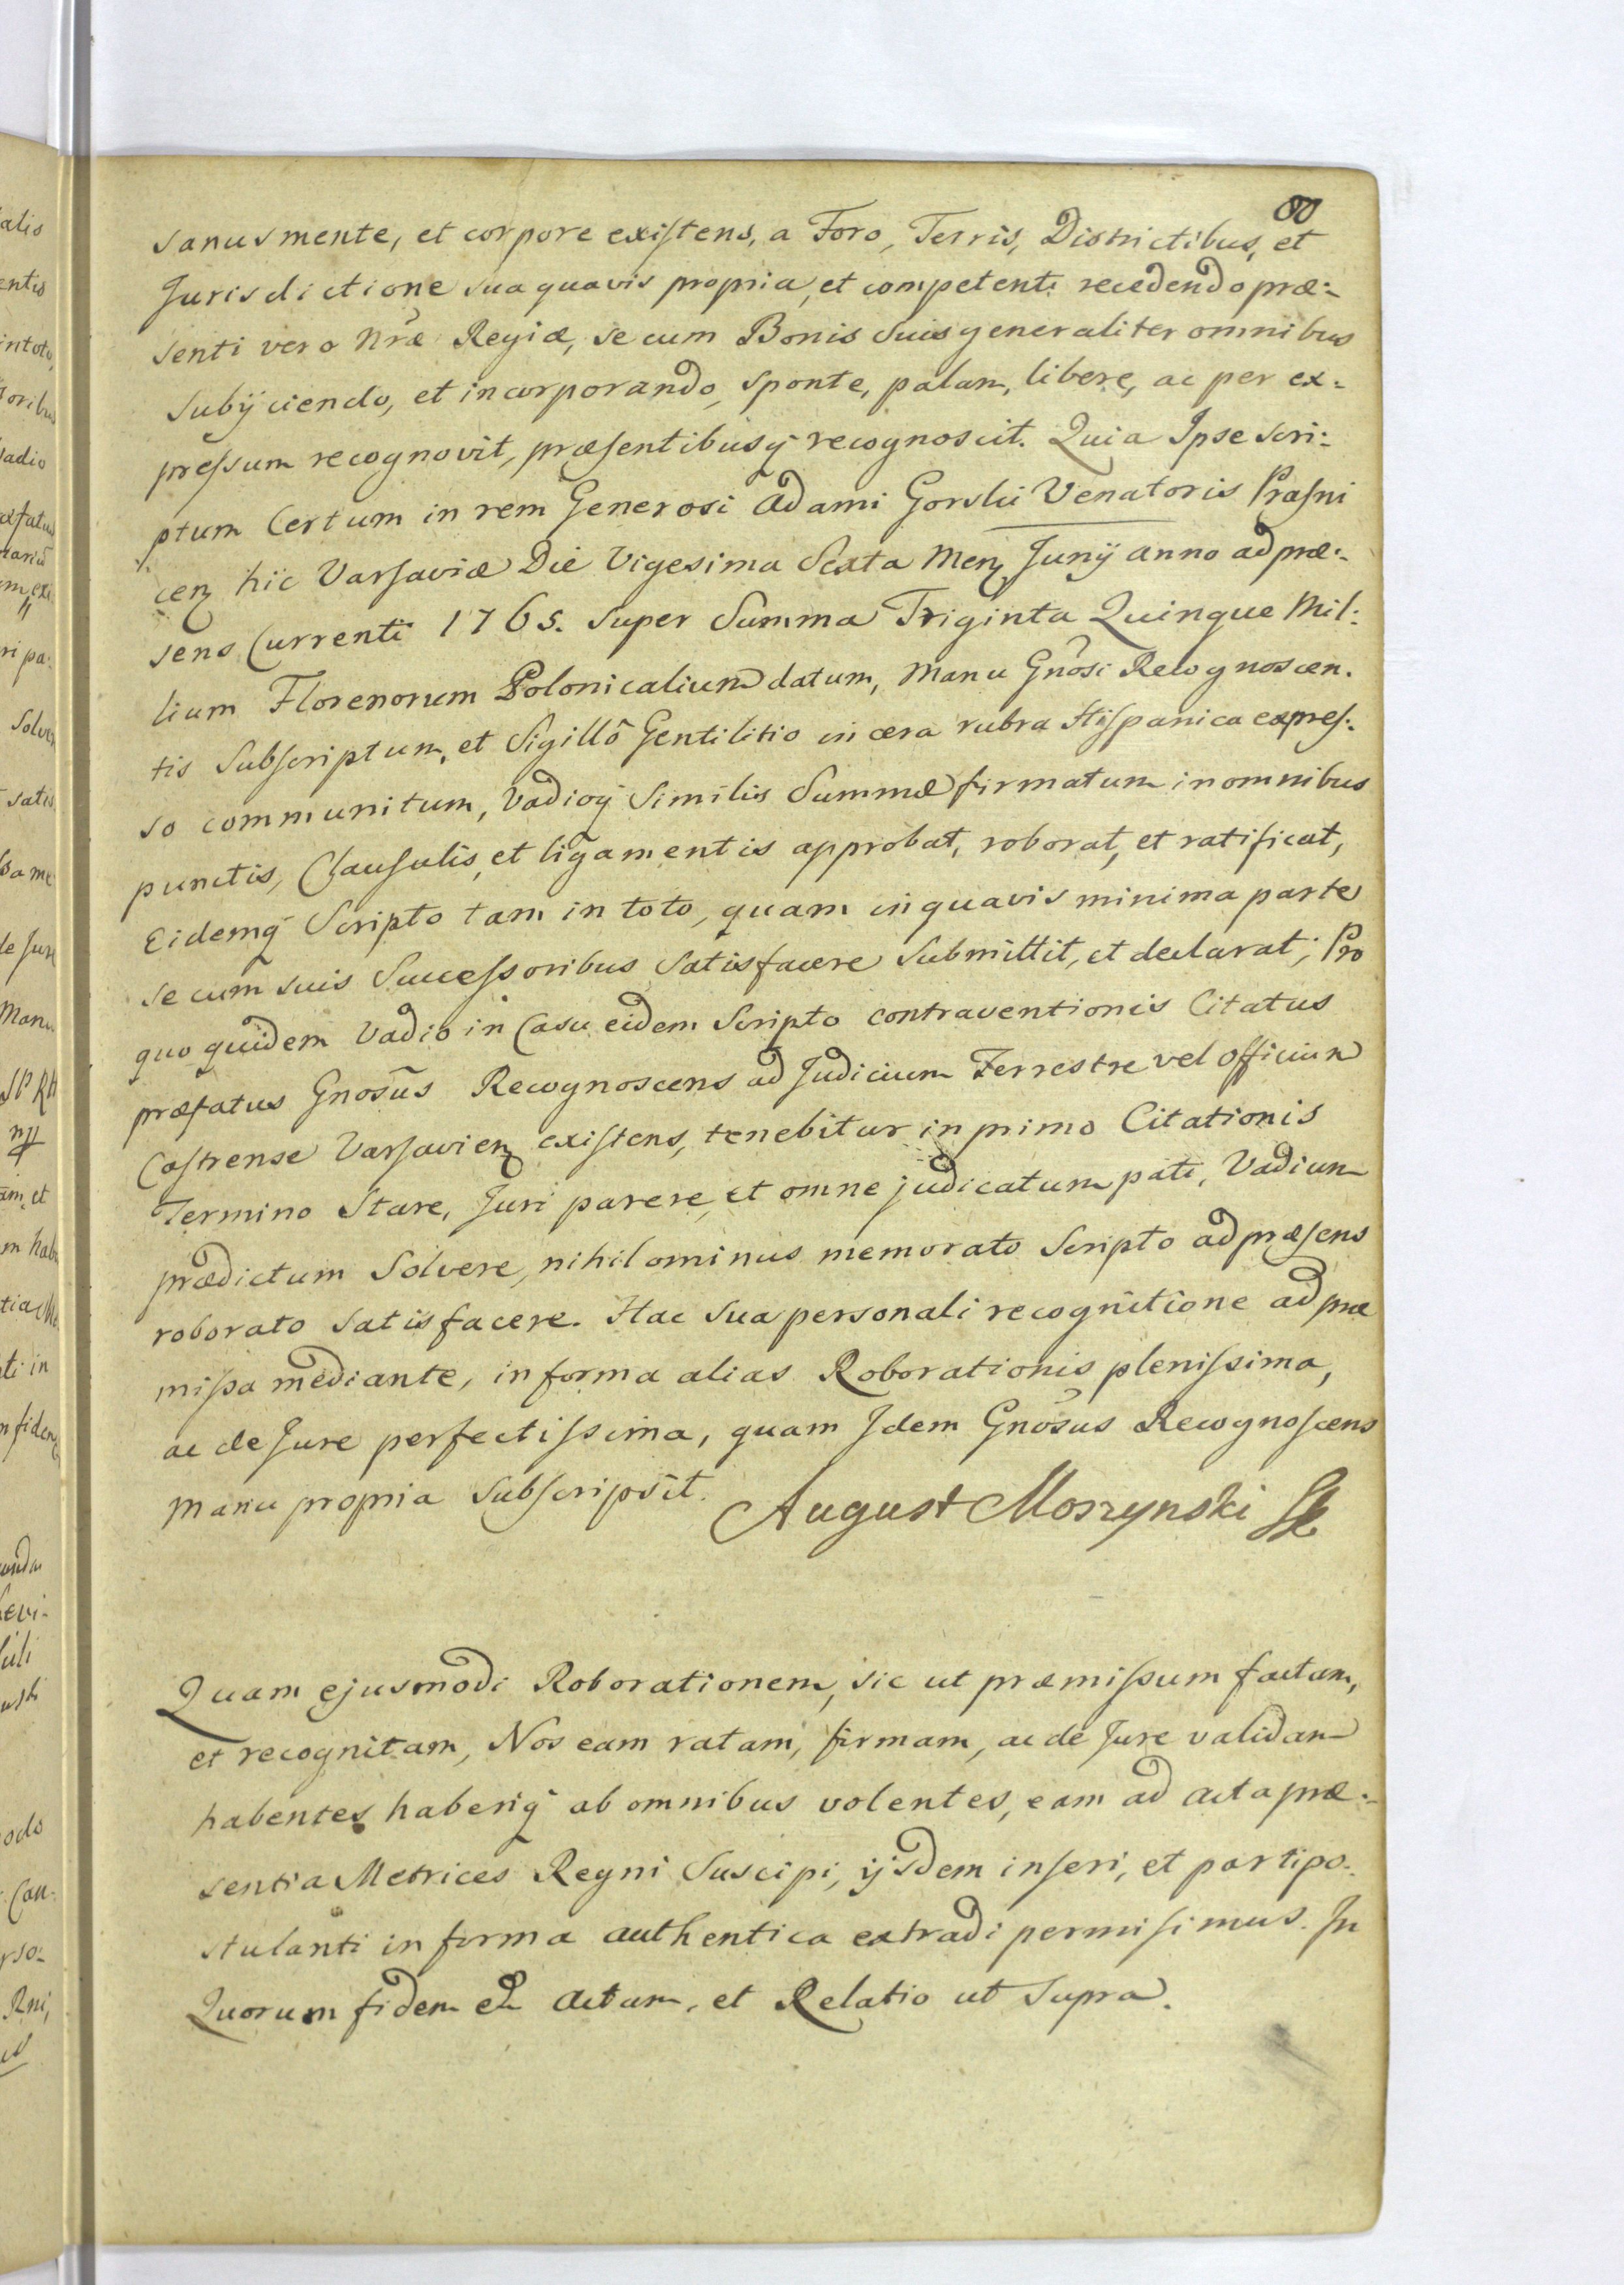 80
sanus mente, et corpore existens, a Foro, Terris, Districtibus, et
Jurisdictione sua quavis propria, et competenti recedendo præ-
senti vero Nr̃æ Regiæ, se cum Bonis Suis generaliter omnibus
Subÿciendo, et incorporando, sponte, palam, libere, ac per ex-
pressum recognovit, præsentibusq̃ recognoscit. Quia Ipse scri-
ptum Certum in rem Generosi Adami Gorski Venatoris Prasni
cen̄ hic Varsaviæ Die Vigesima Sexta Men̄ Junÿ anno ad præ-
sens Currenti 1765. Super Summa Triginta Quinque Mil-
lium Florenorum Polonicalium datum, Manu Gñosi Recognoscen-
tis Subscriptum, et Sigillô Gentilitio in cera rubra Hispanica expres-
so communitum, Vadioq̃ Similis Summæ firmatum in omnibus
punctis, Clausulis, et ligamentis approbat, roborat, et ratificat,
Eidemq̃ Scripto tam in toto, quam in quavis minima parte
se cum suis Successoribus Satisfacere Submittit, et declarat; Pro
quo quidem Vadio in Casu eidem Scripto contraventionis Citatus
præfatus Gnosũs Recognoscens ad Judicium Terrestre vel Officium
Castrense Varsavien̄ existens, tenebitur in primo Citationis
Termino Stare, Juri parere, et omne judicatum pati, Vadium
prædictum Solvere, nihilominus memorato Scripto ad præsens
roborato satisfacere. Hac Sua personali recognitione ad præ
missa mediante, in forma alias Roborationis plenissima,
ac de Jure perfectissima, quam Idem Gnõsus Recognoscens
Manu propria Subscripsit.
August Moszynski
Quam ejusmodi Roborationem, sic ut præmissum factam,
et recognitam, Nos eam ratam, firmam, ac de Jure validam
habentes, haberiq̃ ab omnibus volentes, eam ad acta præ-
sentia Metrices Regni Suscipi, ÿsdem inseri, et parti po-
stulanti in forma authentica extradi permisimus. In
Quorum fidem &. Actum, et Relatio ut Supra.